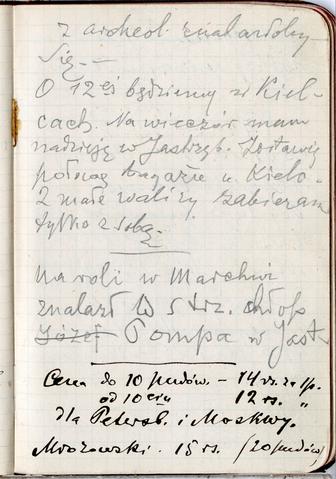 z archeol. znalazłoby
się. —
O 12ej będziemy w Kiel-
cach. Na wieczór mam
nadzieję w Jastrzęb. Zostawię
połowę bagażu w Kielc.
2 małe walizy zabieram
tylko z sobą.
Na roli w Marchwi
znalazł w strz. chłop
Józef Pompa w Jast
Cena do 10 pudów – 14 rs. za 1p.
od 10ciu 12 rs. "
dla Petersb. i Moskwy.
Mrozowski. 15 rs (20 pudów)